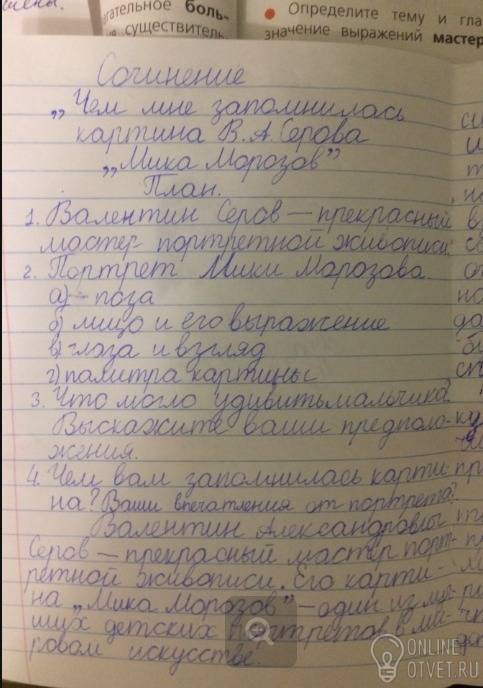 шены.
гательное боль-
существитель
Определите тему и гла
значение выражений мастер
Сочинение
„Чем мне запомнилась
картина В.А.Серова
„Мика Морозов”
План.
1. Валентин Серов — прекрасный
мастер портретной живописи.
2. Портрет Мики Морозова.
а) – поза
б) лицо и его выражение
в) глаза и взгляд
г) палитра картины
3. Что могло удивить мальчика?
Выскажите ваши предполо-
жения.
4. Чем вам запомнилась карти
на? Ваши впечатления от портрета?
Валентин Александровы
Серов — прекрасный мастер порт-
ретной живописи. Его карти-
на „Мика Морозов” — один из лу-
ших детских портретов в ми-
ровом искусстве.
ONLINE
OTVET.RU